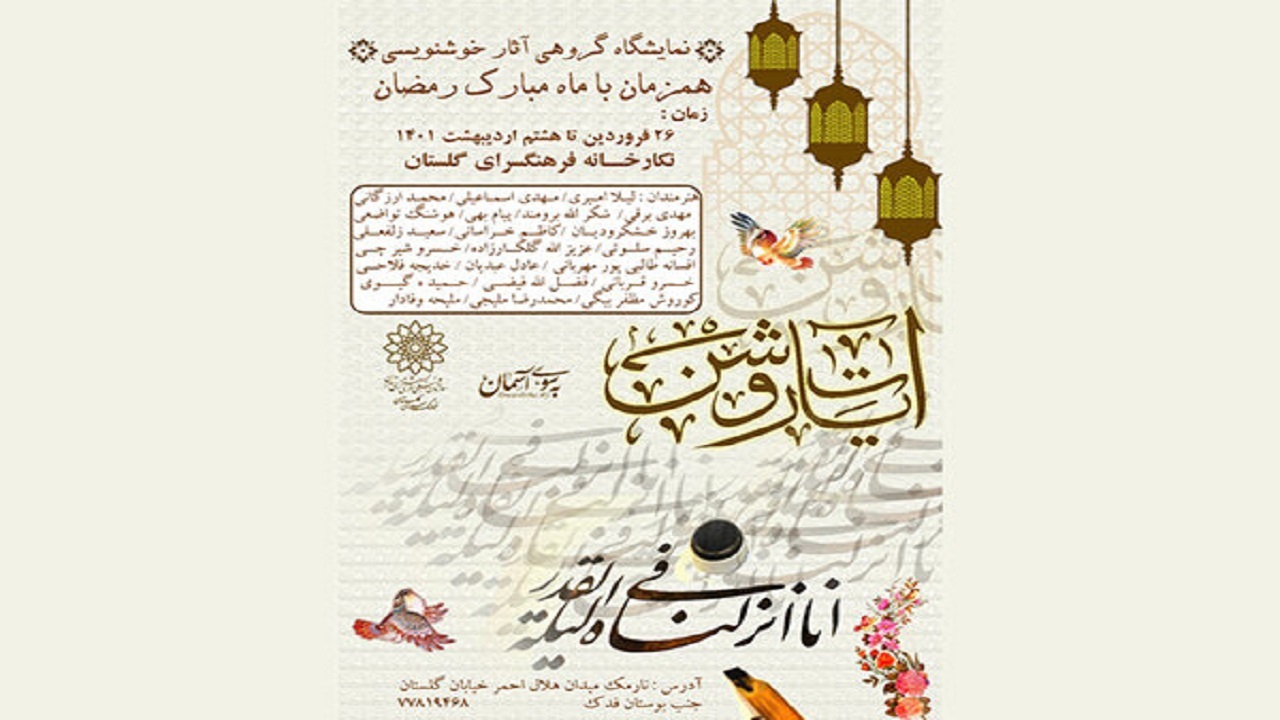 نمایشگاه گروهی آثار خوشنویسی
همزمان با ماه مبارک رمضان
زمان :
۲۶ فروردین تا هشتم اردیبهشت ۱۴۰۱
نگارخانه فرهنگسرای گلستان
هنرمندان : لیلا امیری / مهدی اسماعیلی / محمد ارزگانی
مهدی برقی / شکر الله برومند / پیام بهی / هوشنگ تواضعی
بهروز خشکرودیان / کاظم خراسانی / سعید زلفعلی
رحیم سلوتی / عزیز الله گلکارزاده / خسرو شیر چی
افسانه طالبی پور مهربانی / عادل عبدیان / خدیجه فلاحی
خسرو قربانی / فضل الله فیضی / حمید ه گیوی
کوروش مظفر بیگی / محمدرضا ملیجی / ملیحه وفادار
آیات روشن
به سوی آسمان
انا انزلناه فی لیلة القدر
آدرس : نارمک میدان هلال احمر خیابان گلستان
جنب بوستان فدک
۷۷۸۱۹۴۶۸